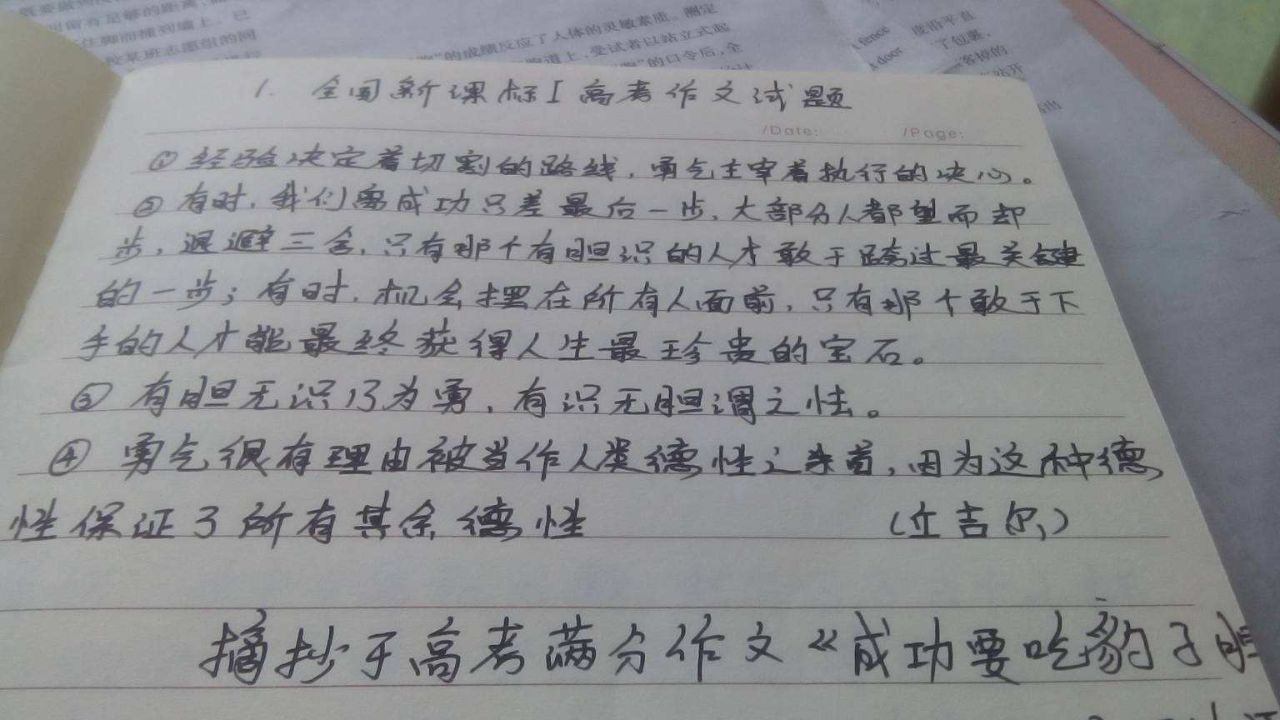 1. 全国新课标I高考作文试题
/Date: /Page:
① 经验决定着切割的路线，勇气主宰着执行的决心。
② 有时，我们离成功只差最后一步，大部分人都望而却
步，退避三舍，只有那个有胆识的人才敢于跨过最关键
的一步；有时，机会摆在所有人面前，只有那个敢于下
手的人才能最终获得人生最珍贵的宝石。
③ 有胆无识乃为勇，有识无胆谓之怯。
④ 勇气很有理由被当作人类德性之首，因为这种德
性保证了所有其余德性 (丘吉尔)
摘抄于高考满分作文《成功要吃豹子胆
的成绩反应了人体的灵敏素质。测定
受试者以站立式起
的口令后，全